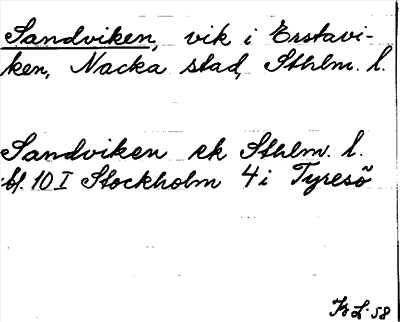 Sandviken, vik i Erstavi-
ken, Nacka stad, Sthlm. l.
Sandviken ek Sthlm. l.
bl. 10 I Stockholm 4 i Tyresö
KL-58